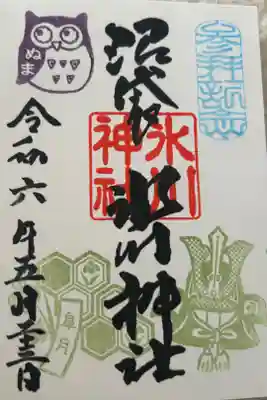 参拝記念
沼袋氷川神社
氷川神社
ぬま
令和六年五月二十三日
皐月